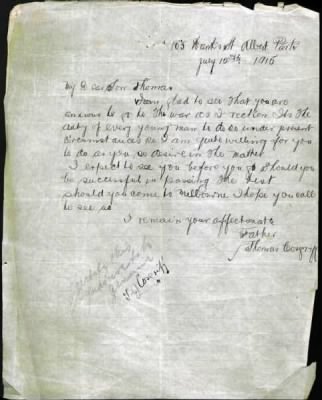 103 Bank St Albert Park
July 10th 1915
My Dear Son Thomas
I am glad to see that you are
anxious to go to the war as I reckon its the
duty of every young man to do so under present
circumstances I am quite willing for you
to do as you desire in the matter
I expect to see you before you go Should you
be successful in passing the test
should you come to Melbourne I hope you call
to see us
I remain your affectionate
Father
Thomas Cosgriff
T Cosgriff